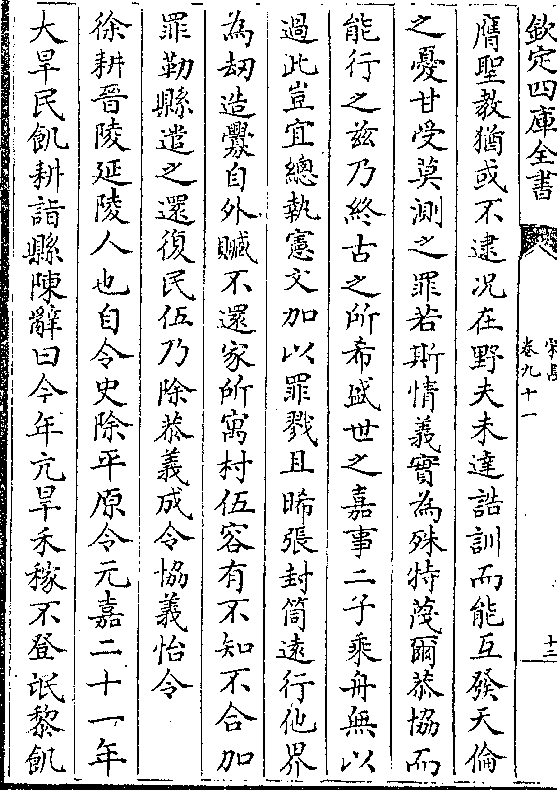 欽定四庫全書
宋書
卷九十一
十三
膺聖教猶或不逮况在野夫未達誥訓而能互發天倫
之憂甘受莫測之罪若斯情義實為殊特蔑爾恭協而
能行之兹乃終古之所希盛世之嘉事二子乘舟無以
過此豈宜總執憲文加以罪戮且晞張封筒逺行他界
為刼造釁自外贓不還家所寓村伍容有不知不合加
罪勒縣遣之還復民伍乃除恭義成令協義怡令
徐耕晉陵延陵人也自令史除平原令元嘉二十一年
大旱民飢耕詣縣陳辭曰今年亢旱禾稼不登氓黎飢